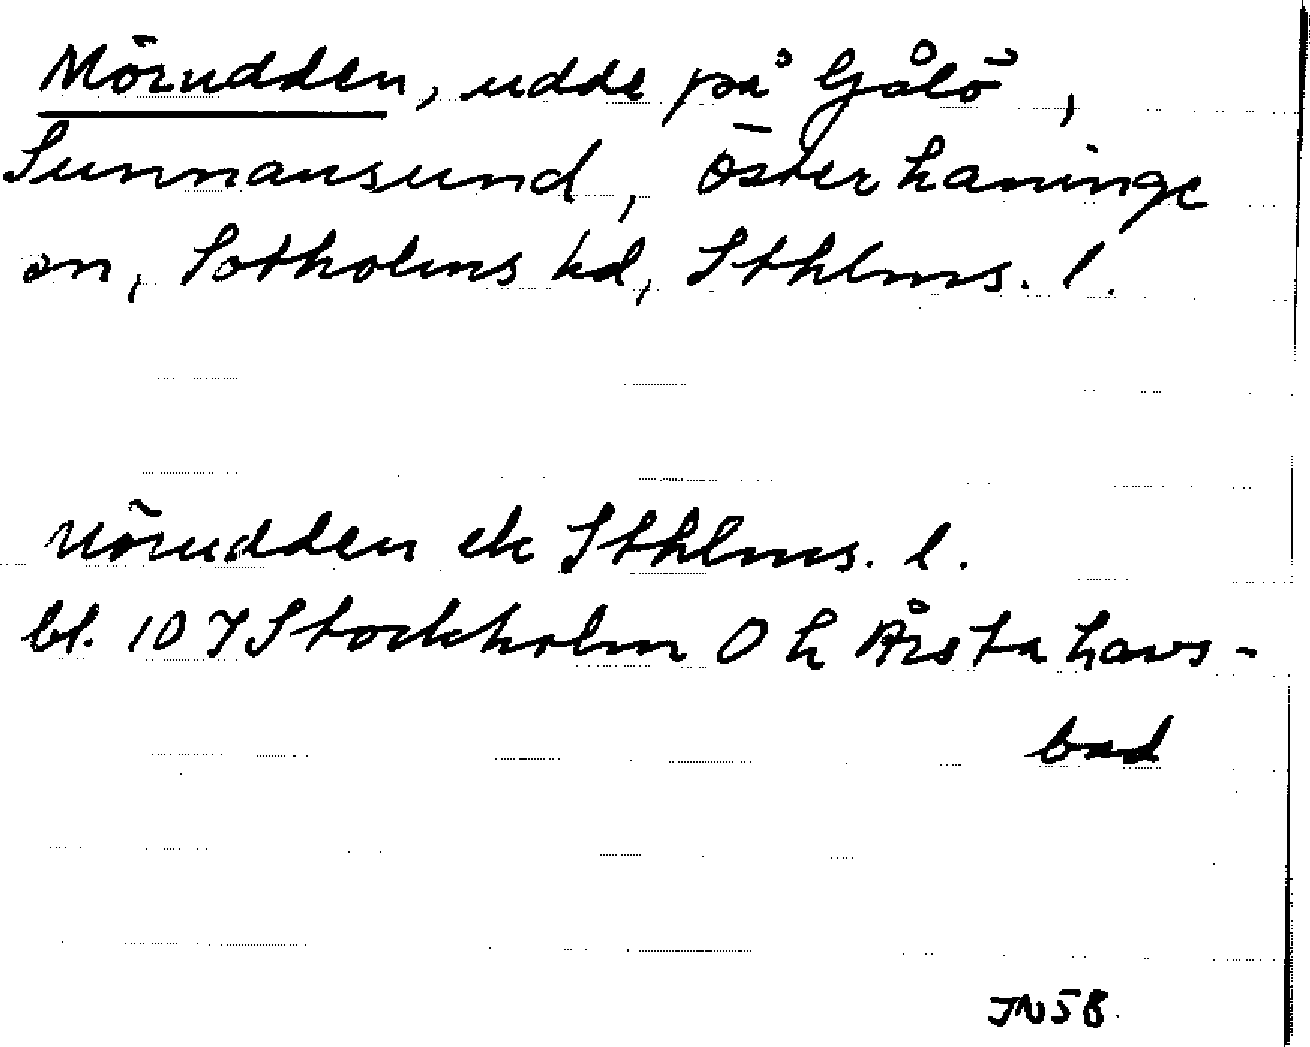 Mörudden, udde på Gålö,
Sunnansund, Österhaninge
sn, Sotholms hd, Sthlms. l.
Mörudden ek Sthlms. l.
bl. 10 I Stockholm O h Årsta havs-
bad
JN58